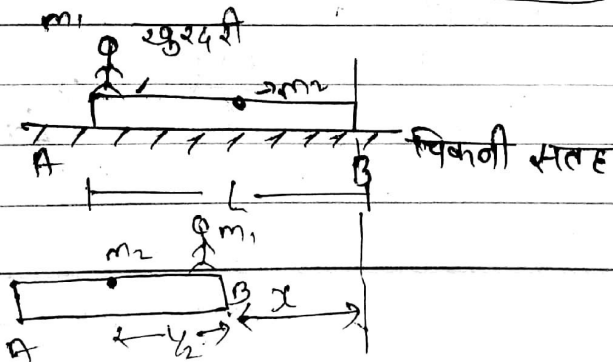 m1 खुरदरी
m2
A B चिकनी सतह
L
m1
m2
B x
A L/2